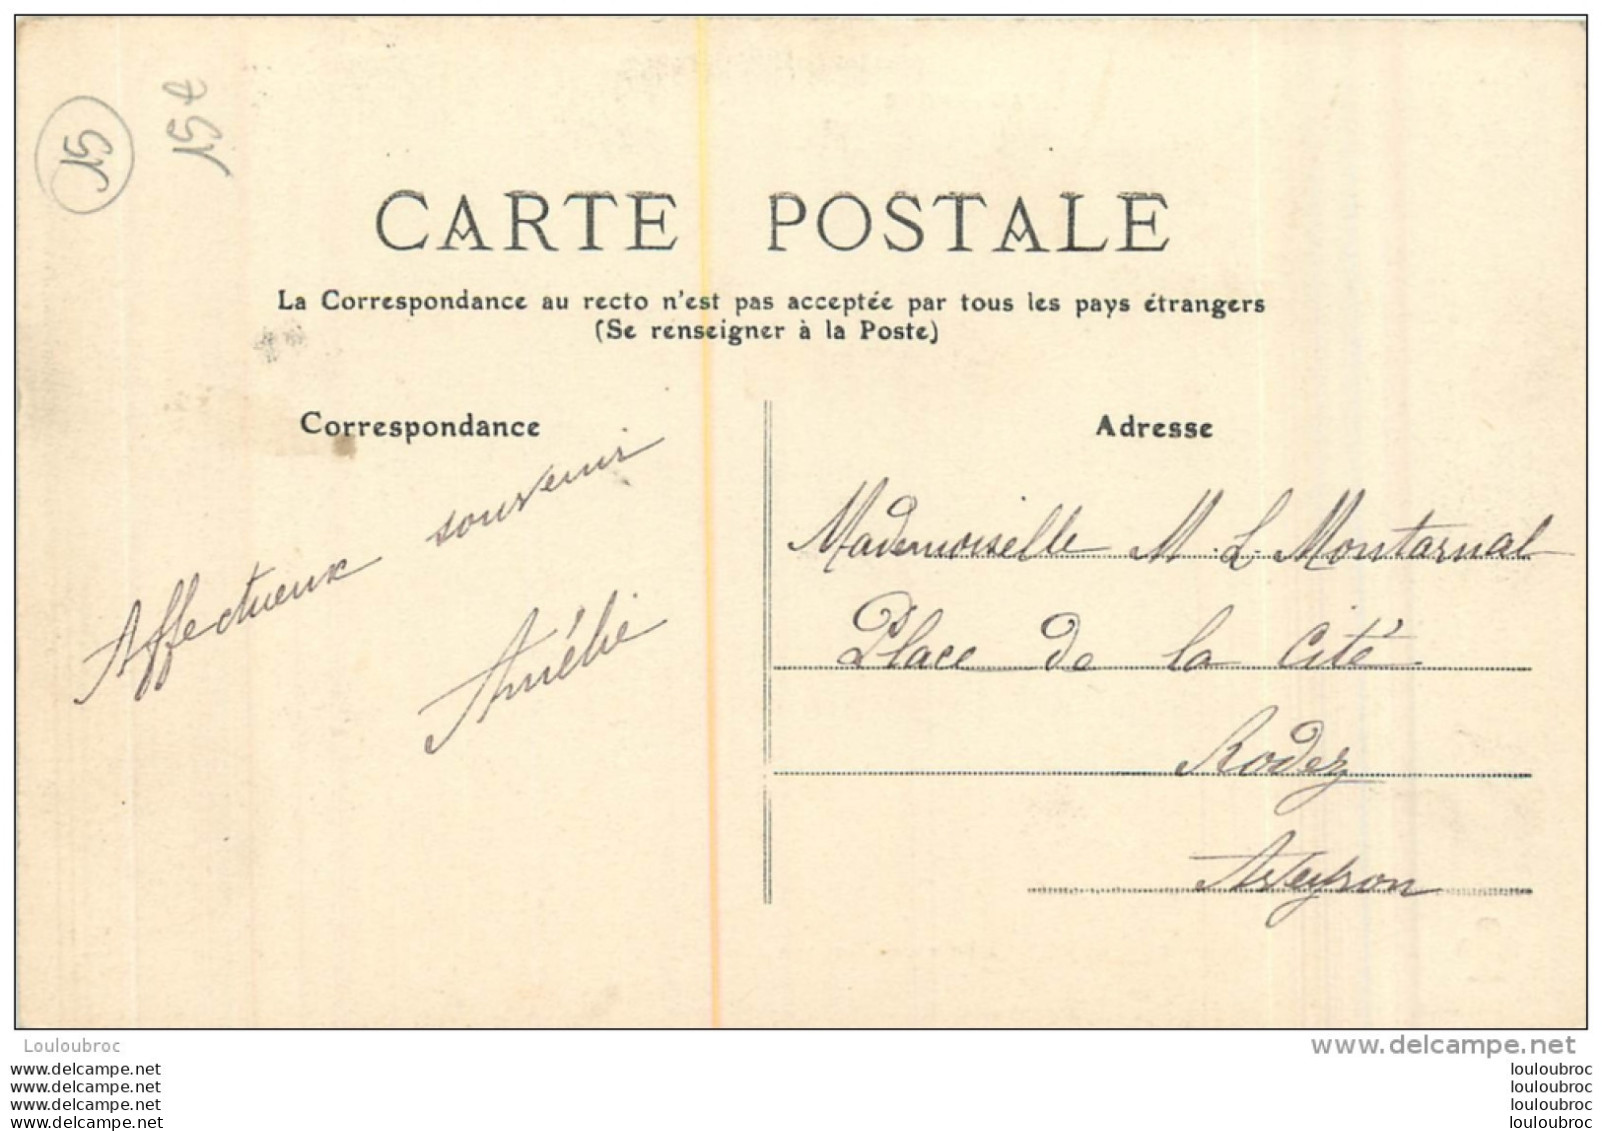 15
15 t
CARTE POSTALE
La Correspondance au recto n'est pas acceptée par tous les pays étrangers
(Se renseigner à la Poste)
Correspondance
Affectueux souvenir
Amélie
Adresse
Mademoiselle M. L. Montarnal
Place de la Cité
Rodez
Aveyron
Louloubroc
www.delcampe.net
www.delcampe.net
www.delcampe.net
www.delcampe.net
www.delcampe.net
louloubroc
louloubroc
louloubroc
louloubroc